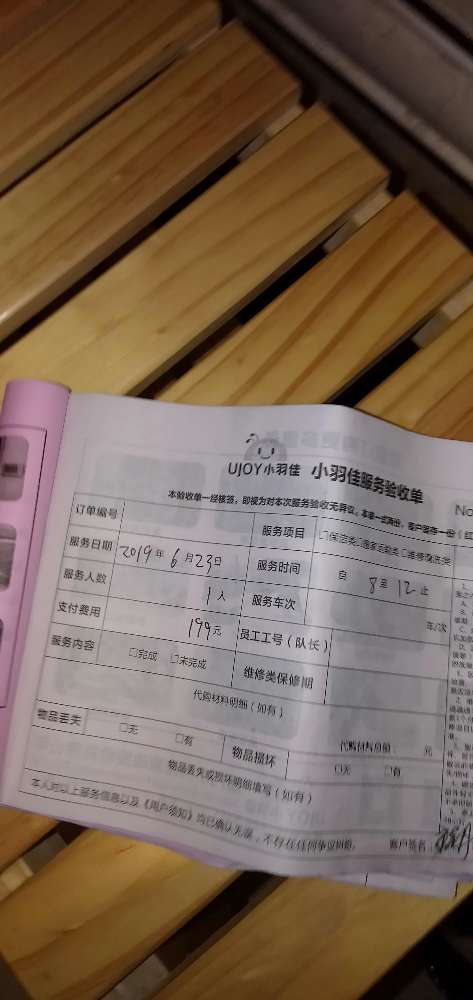 UJOY小羽佳 小羽佳服务验收单
No
本验收单一经核签，即视为对本次服务验收无异议，本单一式两份，客户留存一份（红
订单编号 服务项目 □保洁类□居家去勤类□维修清洗类
服务日期 2019年6月23日 服务时间 自 8 至 12 止
服务人数 1人 服务车次 车/次
支付费用 199元 员工工号（队长）
服务内容 □完成 □未完成 维修类保修期
代购材料明细（如有）
代购材料总额： 元
物品丢失 □无 □有 物品损坏 □无 □有
物品丢失或损坏明细填写（如有）
本人对以上服务信息以及《用户须知》均已确认无误，不存在任何争议纠纷。 客户签名：